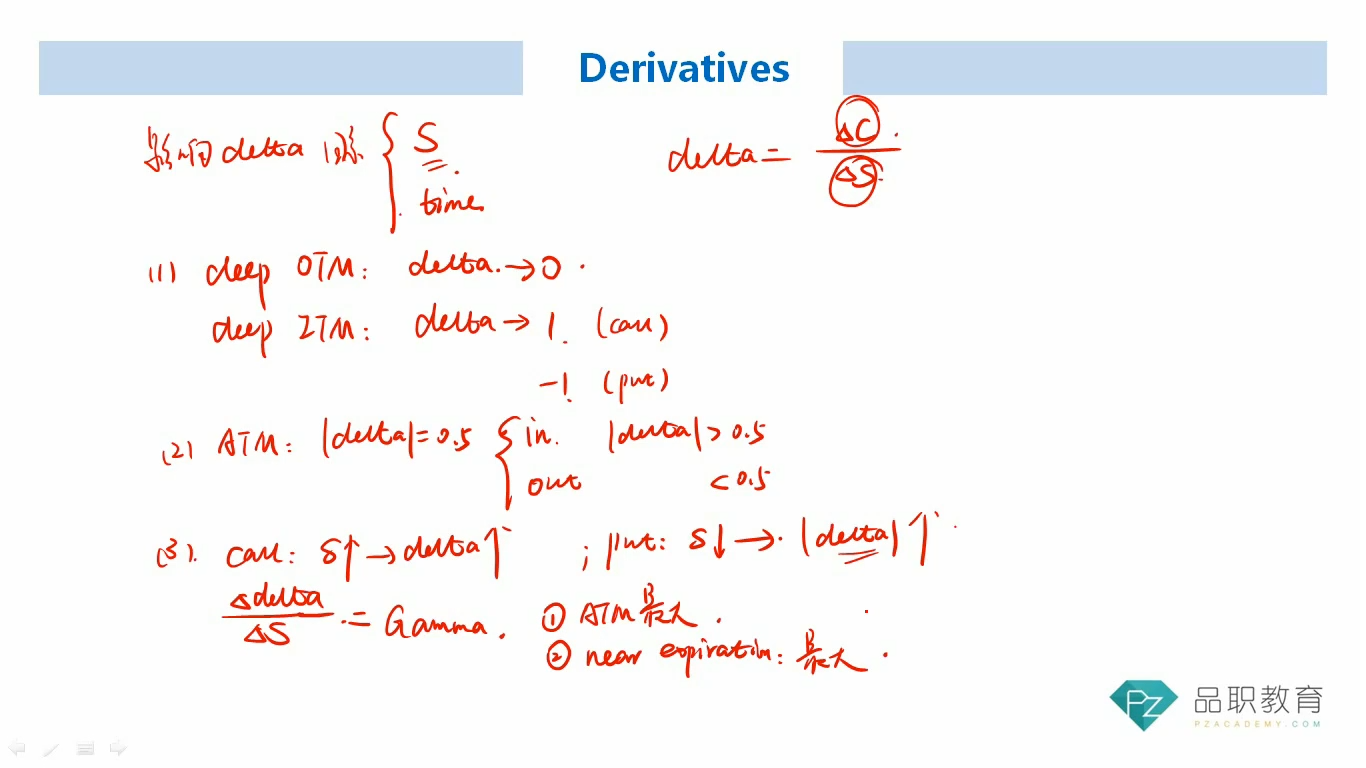 Derivatives
影响 delta 因素 { S
time
delta = ΔC / ΔS
(1) deep OTM: delta → 0.
deep ITM: delta → 1. (call)
-1. (put)
(2) ATM: |delta| = 0.5 { in. |delta| > 0.5
out < 0.5
(3). call: S↑ → delta↑ ; put: S↓ → |delta|↑
Δdelta / ΔS = Gamma. ① ATM 最大.
② near expiration: 最大.
PZ 品职教育
PZACADEMY.COM